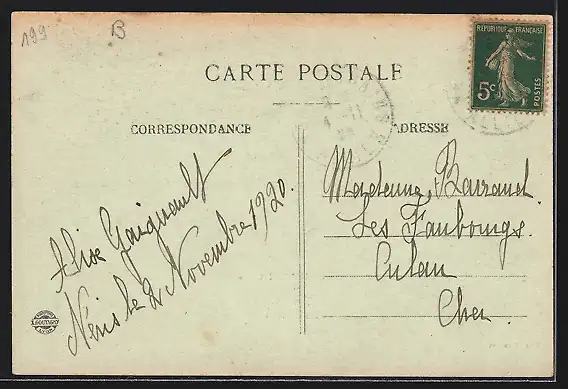 199
B
CARTE POSTALE
RÉPUBLIQUE FRANÇAISE
5c
POSTES
CORRESPONDANCE
ADRESSE
Alise Gaignault
Néris le 2 Novembre 1920.
Madame Barraud
Les Faubourgs.
Culan
Cher